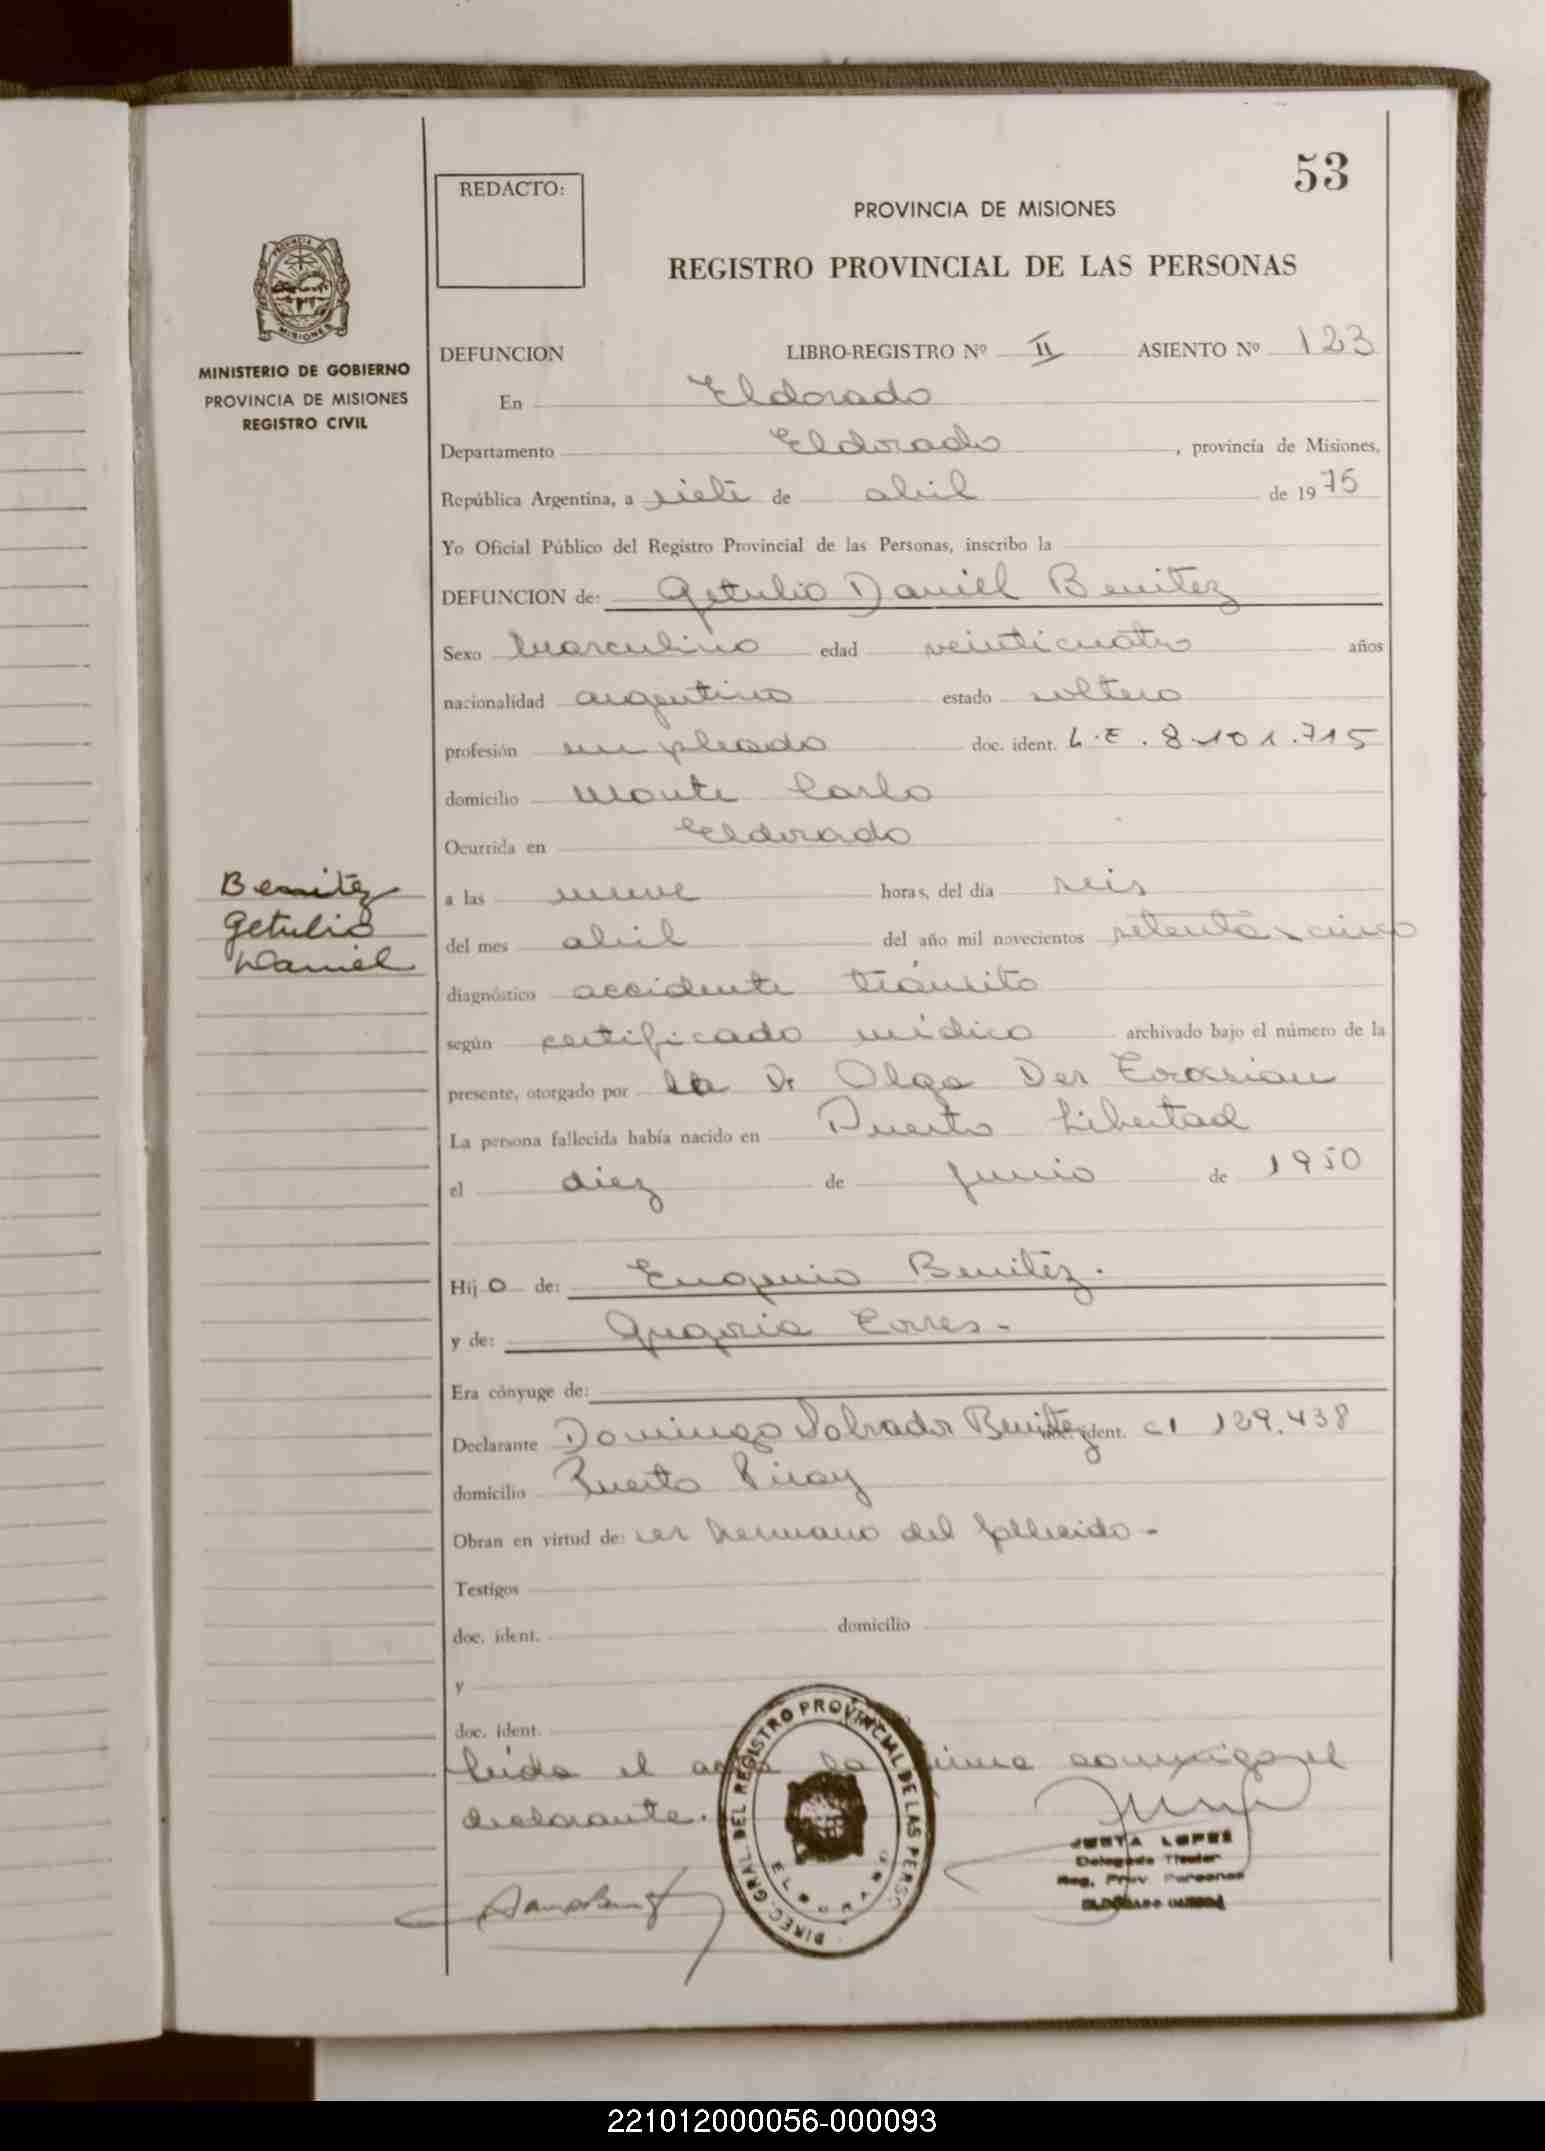 53
REDACTO:
PROVINCIA DE MISIONES
REGISTRO PROVINCIAL DE LAS PERSONAS
MINISTERIO DE GOBIERNO
PROVINCIA DE MISIONES
REGISTRO CIVIL
DEFUNCION LIBRO-REGISTRO Nº II ASIENTO Nº 123
En Eldorado
Departamento Eldorado, provincia de Misiones,
República Argentina, a siete de abril de 1975
Yo Oficial Público del Registro Provincial de las Personas, inscribo la
DEFUNCION de: Getulio Daniel Benitez
Sexo Masculino edad veinticuatro años
nacionalidad argentino estado soltero
profesión empleado doc. ident. L.E. 8.101.715
domicilio Monte Carlo
Ocurrida en Eldorado
Benitez
Getulio
Daniel
a las nueve horas, del día seis
del mes abril del año mil novecientos setenta y cinco
diagnóstico accidente tránsito
según certificado médico archivado bajo el número de la
presente, otorgado por la Dr Olga Der
La persona fallecida había nacido en Puerto Libertad
el diez de junio de 1950
Hijo de: Eugenio Benitez.
y de: Gregoria Torres-
Era cónyuge de:
Declarante Domingo Salvador Benitez doc. ident. CI 129.438
domicilio Puerto Piray
Obran en virtud de: ser hermano del fallecido-
Testigos
doc. ident. domicilio
y
doc. ident.
Leída el acta la firma conmigo el
declarante.
DIREC. GRAL. DEL REGISTRO PROVINCIAL DE LAS PERS.
ELDORADO
JUSTA LOPEZ
Delegada Titular
Reg. Prov. Personas
221012000056-000093